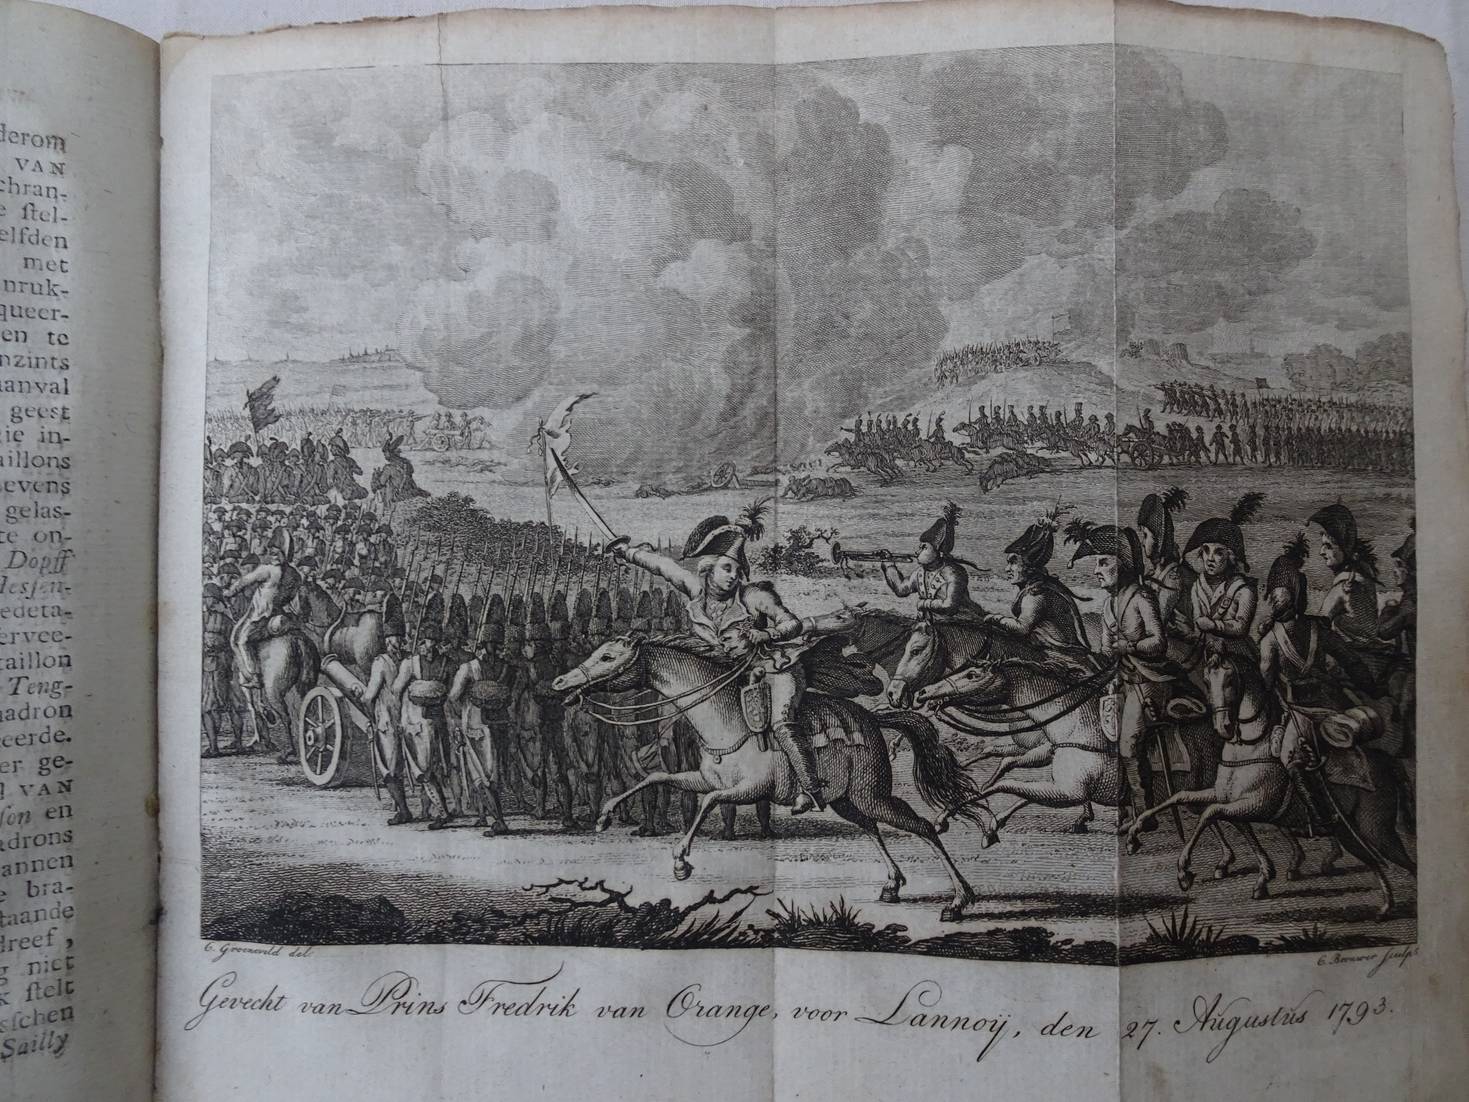 derom
VAN
chran-
e ſtel-
elfden
met
nruk-
queer-
en te
nzints
aanval
geest
ie in-
aillons
evens
gelas-
te on-
Dopff
desjen-
edeta-
ervee-
taillon
Teng-
adron
eerde.
er ge-
VAN
ſon en
adrons
annen
e bra-
taande
dreef,
g niet
k ſtelt
sſchen
Sailly
C. Groeneveld del:
C. Brouwer Sculps
Gevecht van Prins Fredrik van Orange, voor Lannoij, den 27. Augustus 1793.